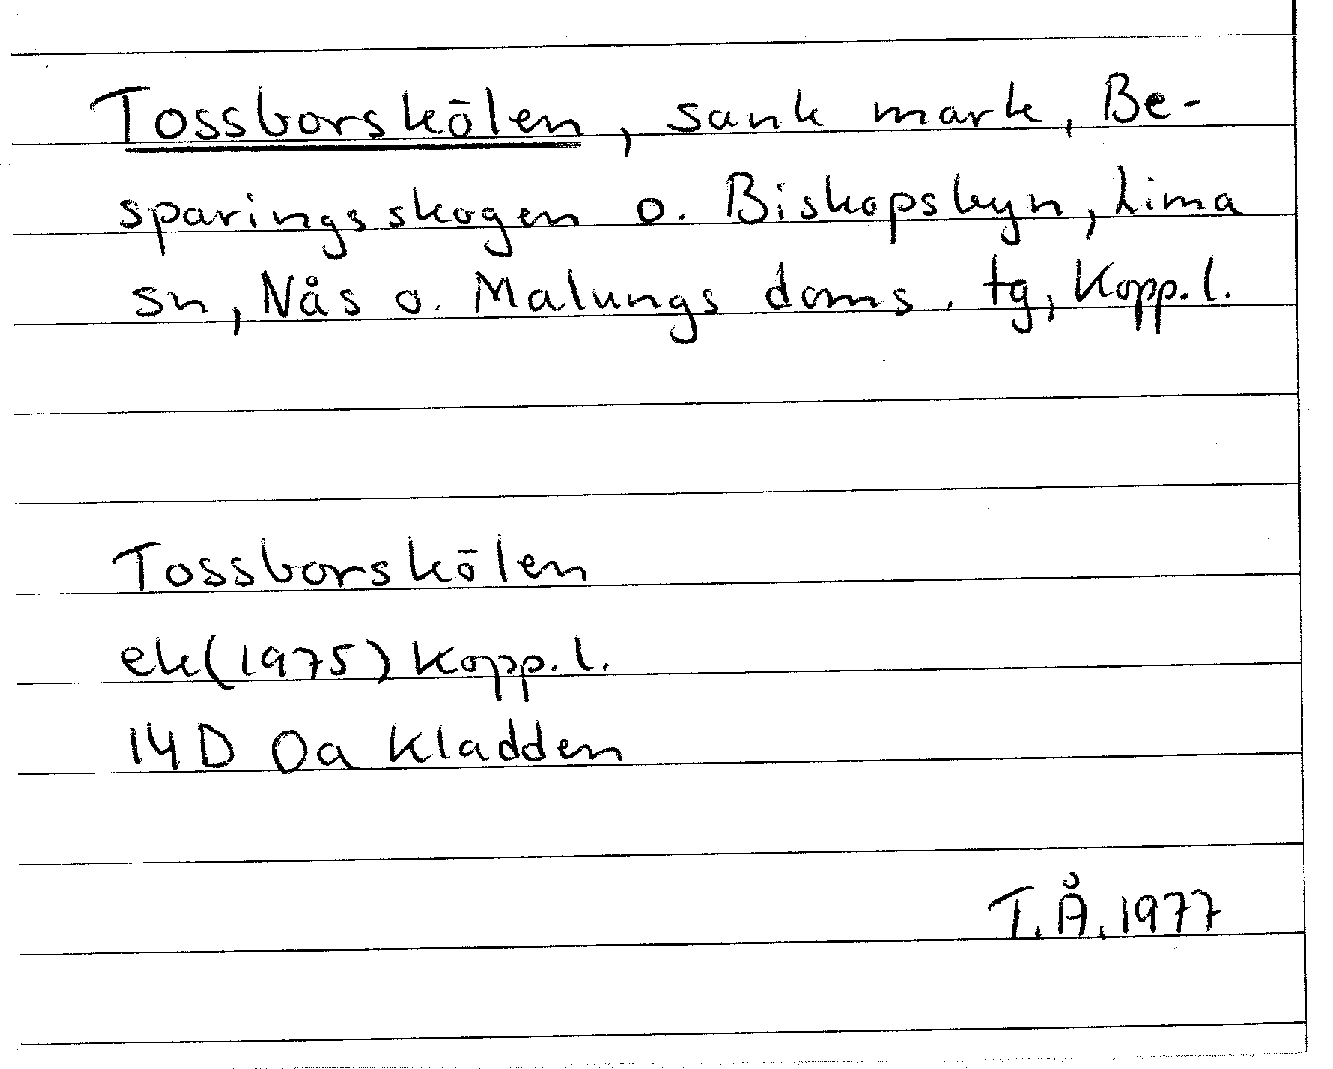 Tossborskölen, sank mark, Be-
sparingsskogen o. Biskopsbyn, Lima
sn, Nås o. Malungs doms. tg, Kopp. l.
Tossborskölen
ek (1975) Kopp. l.
14D 0a Kladden
T.Å. 1977